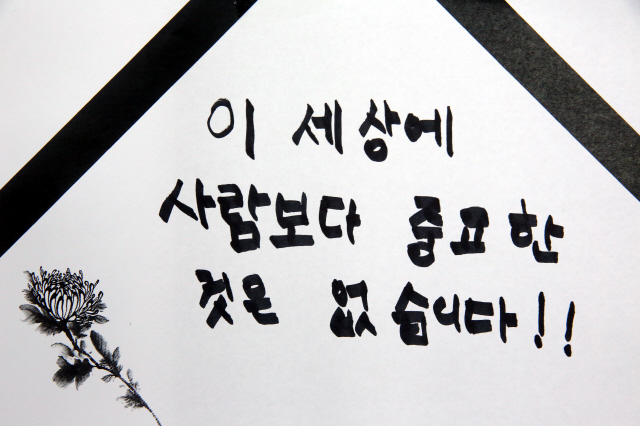 이 세상에
사람보다 중요한
것은 없습니다!!